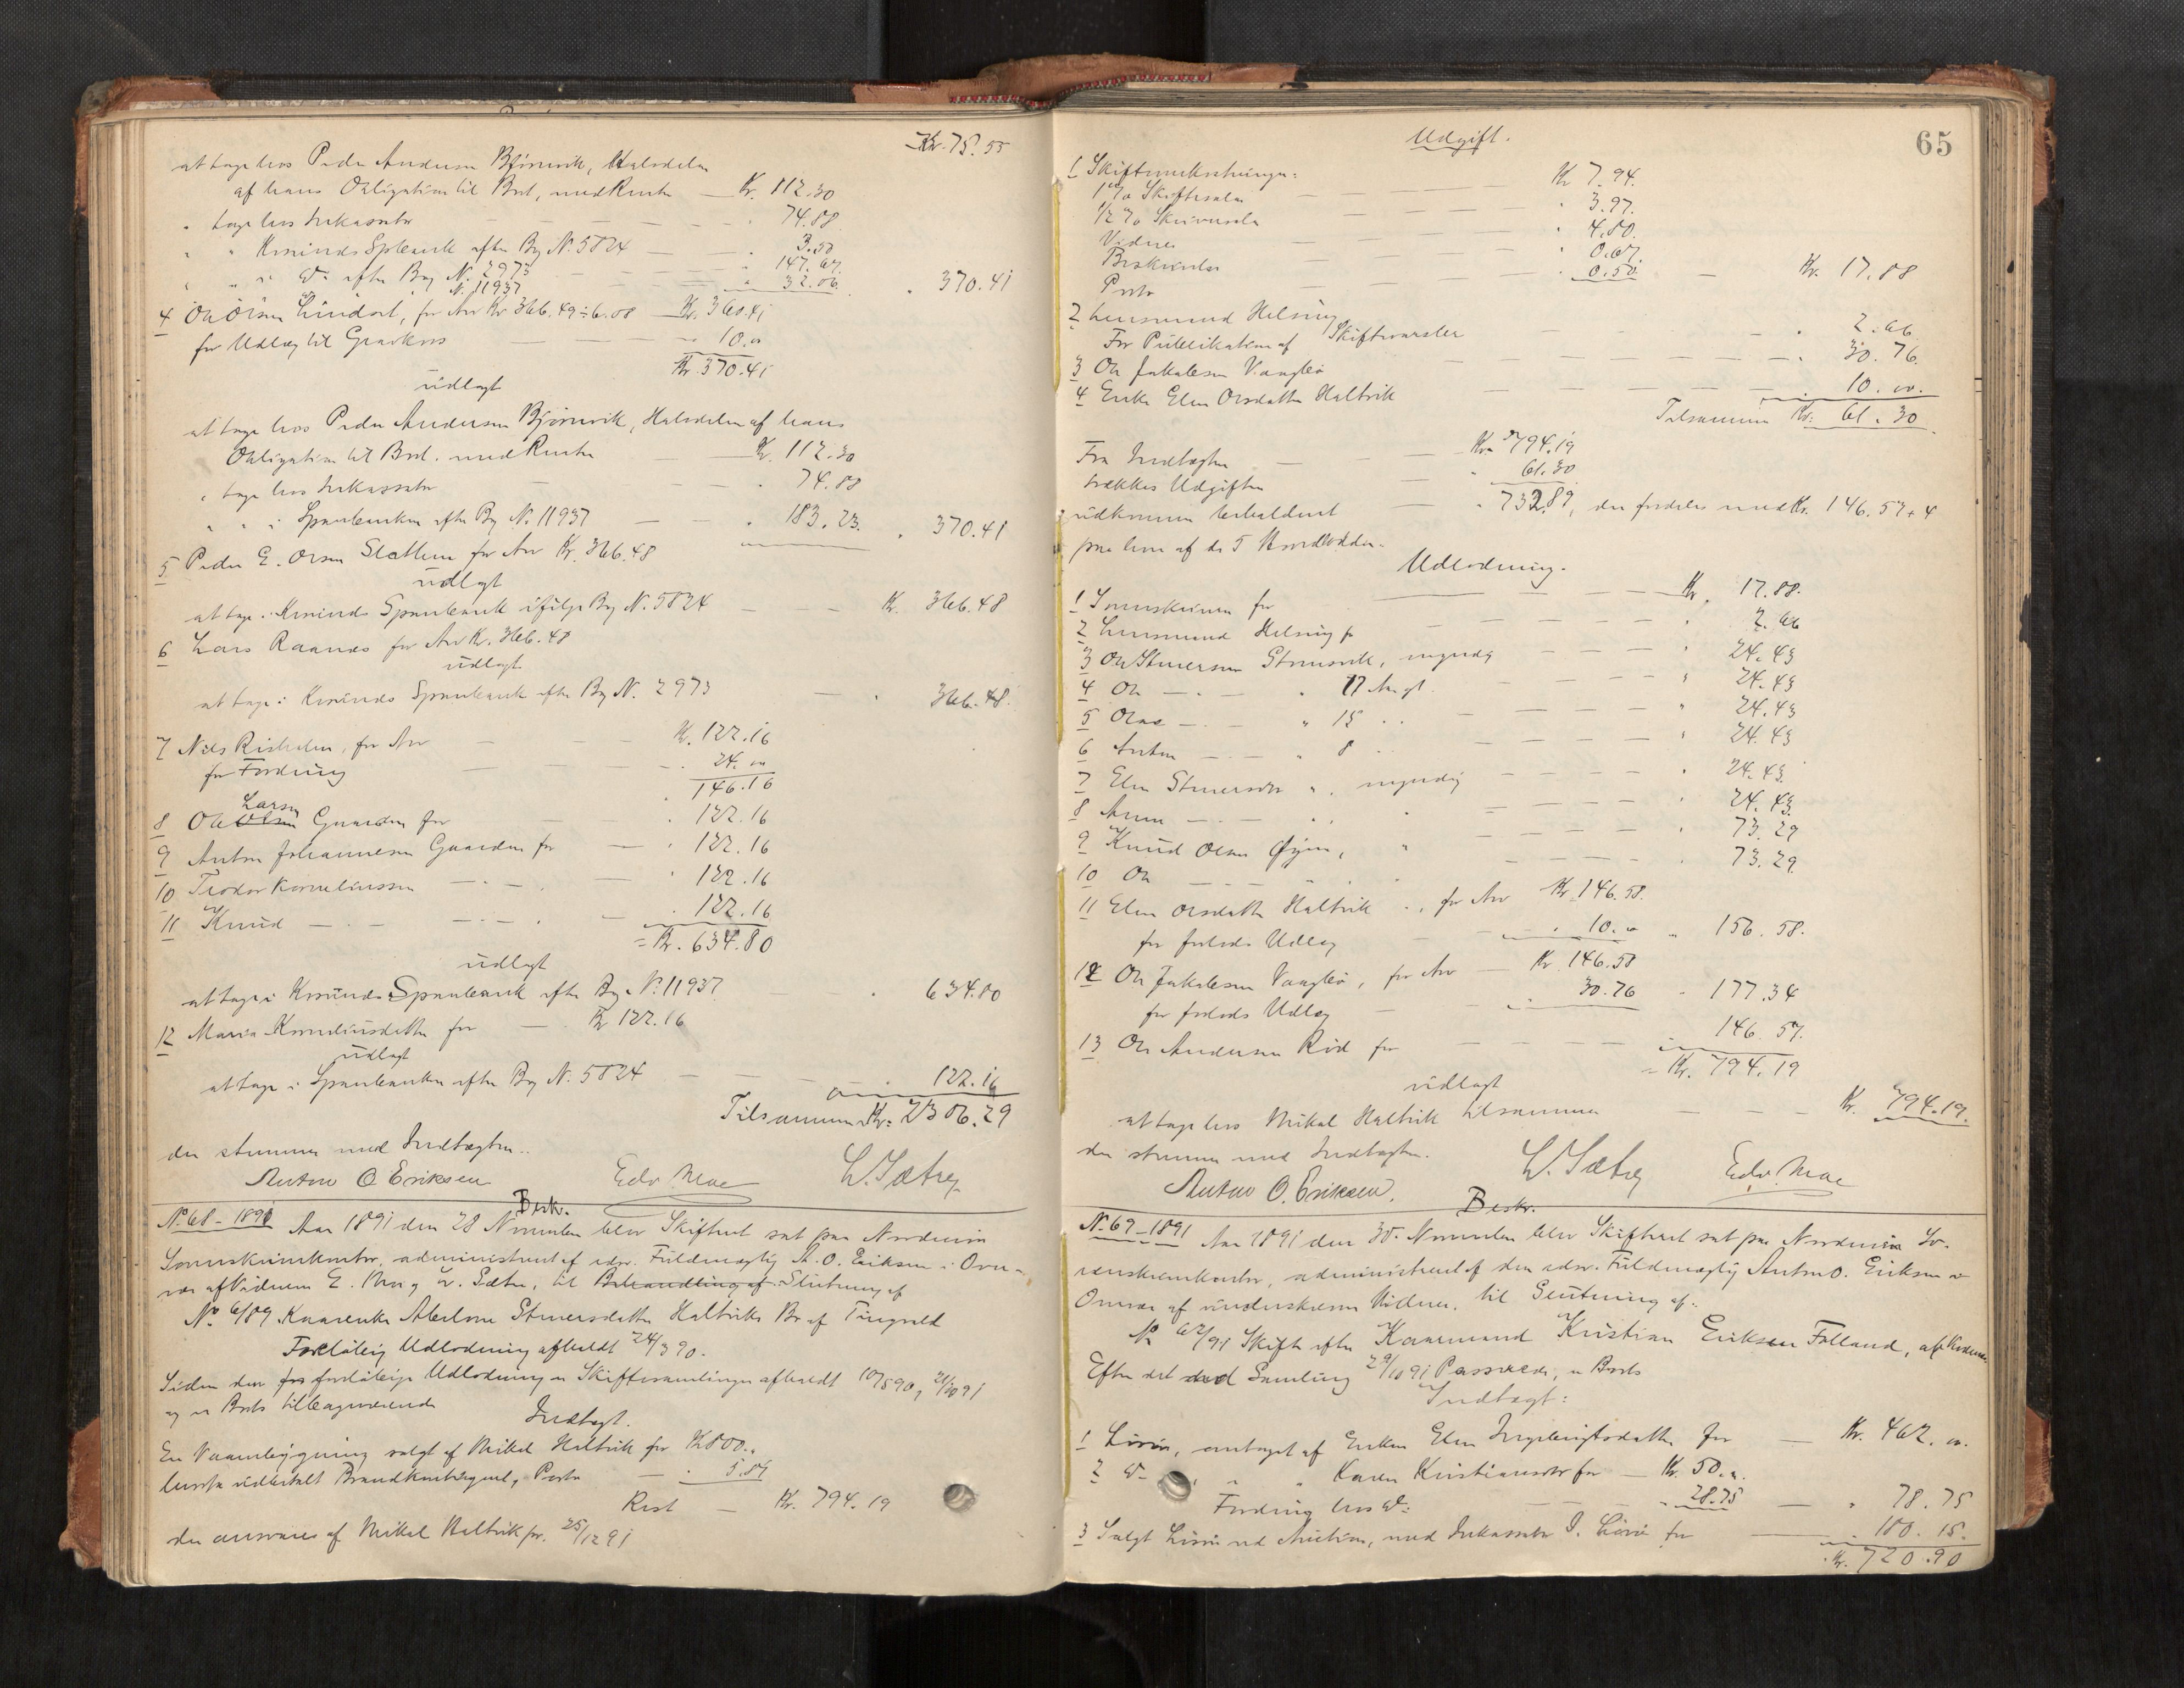 Kr. 75.55
at tage hos Peder Andersen Bjørnvik, Halvdelen
af hans Obligation til Boet, med Rente — Kr. 112.30
" tage hos Inkassator — " 74.88
" " Kr.sunds Spbank efter Bog N. 5824 — " 3.50
" " " do efter Bog N. 2973 — " 147.67
N. 11937 — " 32.06 " 370.41
4 Ole Olsen for Arv Kr 366.49 ÷ 6.08 — Kr. 360.41
for Udlæg til Gravkors — " 10.00
Kr. 370.41
udlagt
at tage hos Peder Andersen Bjørnvik, Halvdelen af hans
Obligation til Boet. med Rente — Kr. 112.30
" tage hos Inkassator — " 74.88
" " i Sparebanken efter Bog N. 11937 — " 183.23. " 370.41
5 Peder E. Olsen for Arv Kr. 366.48
udlagt
at tage i Kr.sunds Sparebank ifølge Bog N. 5824 — Kr. 366.48
6 Lars Raanes for Arv Kr. 366.48
udlagt
at tage i Kr.sunds Sparebank efter Bog N. 2973 — " 366.48.
7 Nils for Arv — Kr. 122.16
for Fordring — " 24.00
" 146.16
Larsen
8 Ole Olsen Gaarden for — " 122.16
9 Anton Johannesen Gaarden for — " 122.16
10 Teodor Korneliussen — " — " 122.16
11 Knud — " — — " — " 122.16
= Kr. 634.80
udlagt
at tage i Kr.sunds Sparebank efter Bog N. 11937 — " 634.80
12 Maria Korneliusdatter for — Kr 122.16
udlagt
at tage i Sparebanken efter Bog N. 5824 — " 122.16
Tilsammen Kr. 2306.29
der stemmer med Indtægten.
Anton O Eriksen Edv. Moe L. Sætre
Besk.
N. 68 - 1891 Aar 1891 den 28 November blev Skifteret sat paa Nordmøre
Sorenskriverkontor, administreret af edsv. Fuldmægtig A. O. Eriksen i Over-
vær af Vidnerne E. Moe og L. Sætre, til Behandling af Slutning af
No 6/89 Kaarenke Sturesdatter Haltvik Bo af Tingvold
Foreløbig Udlodning afholdt 24/3 90.
Siden den for foreløbige Udlodning er Skiftesamlinger afholdt 10/5 90 og 21/10 91
og er Boets tilbageværende
Indtægt.
En Vaaningsbygning solgt af Mikal Haltvik for Kr 800.
herfra udbetalt Brandkontingent, Porto — " 5.81
Rest — Kr. 794.19
der ansvares af Mikal Haltvik pr. 25/12 91
65
Udgift.
1 Skifteomkostninger:
1 % Skiftesalær — Kr 7.94.
1/2 % Skriversalær — " 3.97.
Vidner — " 4.80.
Beskrivelse — " 0.67.
Porto — " 0.50. — Kr. 17.88
2 Lensmand Helsing
For Publikation af Skiftevarsler — " 2.66
3 Ole Jakobsen — " 30.76
4 Enke Elen Olsdatter Haltvik — " 10.00.
Tilsammen Kr. 61.30
Fra Indtægten — Kr. 794.19
trækkes Udgiften — " 61.30
udkommer beholdent — " 732.89, der fordeles med Kr. 146.57 + 4
paa hver af de 5 Hovedlodder.
Udlodning.
1 Sorenskriveren for — Kr. 17.88.
2 Lensmand Helsing for — " 2.66
3 Ole Sturesen myndig — " 24.43
4 Ole — " — " 17 Aar gl. — " 24.43
5 Olaus — " — " 15 " " — " 24.43
6 Anton — " — " 8 " — " 24.43
7 Elen Sturesdtr " , myndig — " 24.43
8 Anne — " — " " — " 24.43
9 Knud Olsen Øyen, " — " 73.29
10 Ole — — " " — " 73.29.
11 Elen Olsdatter Haltvik ", for Arv Kr. 146.58.
for forlods Udlæg — " 10.00 " 156.58.
12 Ole Jakobsen for Arv — Kr 146.58
for forlods Udlæg — " 30.76 " 177.34
13 Ole Andersen Rød for — " 146.57.
= Kr. 794.19
udlagt
at tage hos Mikal Haltvik tilsammen — Kr. 794.19.
der stemmer med Indtægten.
Anton O. Eriksen. L. Sætre Edv. Moe
Beskr.
N. 69 - 1891 Aar 1891 den 30. November blev Skifteret sat paa Nordmøre So-
renskriverkontor, administreret af den edsv. Fuldmægtig Anton O. Eriksen i
Overvær af underskrevne Vidner, til Slutning af:
No 62/91 Skifte efter Kaarmand Kristian Eriksen Folland, af
Efter det sted Samling 29/10 91 er Boets
Indtægt:
1 Løsøre, antaget af Enken Elen for — Kr. 462.00.
2 do " " Karen Kristiansdtr for — Kr. 50.00.
Fordring hos do: — " 28.75 — " 78.75
3 Solgt Løsøre ved Auktion, med Inkassator for — " 180.15.
Kr. 720.90